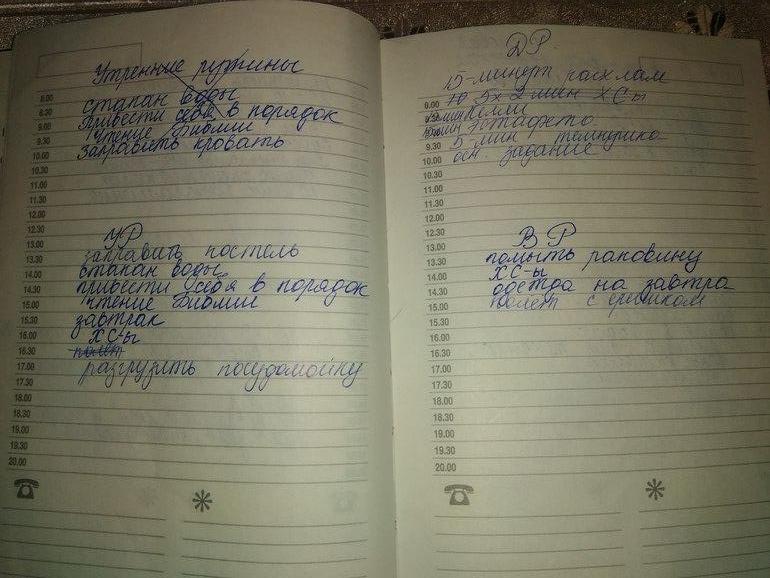 Утренние рутины
8.00
стакан воды
8.30
Привести себя в порядок
9.00
Чтение Библии
9.30
Заправить кровать
10.00
10.30
11.00
11.30
12.00
12.30
УР
13.00
заправить постель
13.30
стакан воды
14.00
привести себя в порядок
14.30
чтение Библии
15.00
завтрак
15.30
ХС-ы
16.00
полёт
16.30
разгрузить посудомойку
17.00
17.30
18.00
18.30
19.00
19.30
20.00
ДР
15-минут расхлам
8.00
10 5х2 мин ХСы
8.30
9.00
5 мин темнушка
9.30
осн. задание
10.00
10.30
11.00
11.30
12.00
12.30
ВР
13.00
помыть раковину
13.30
ХС-ы
14.00
одежда на завтра
14.30
полёт с ёршиком
15.00
15.30
16.00
16.30
17.00
17.30
18.00
18.30
19.00
19.30
20.00